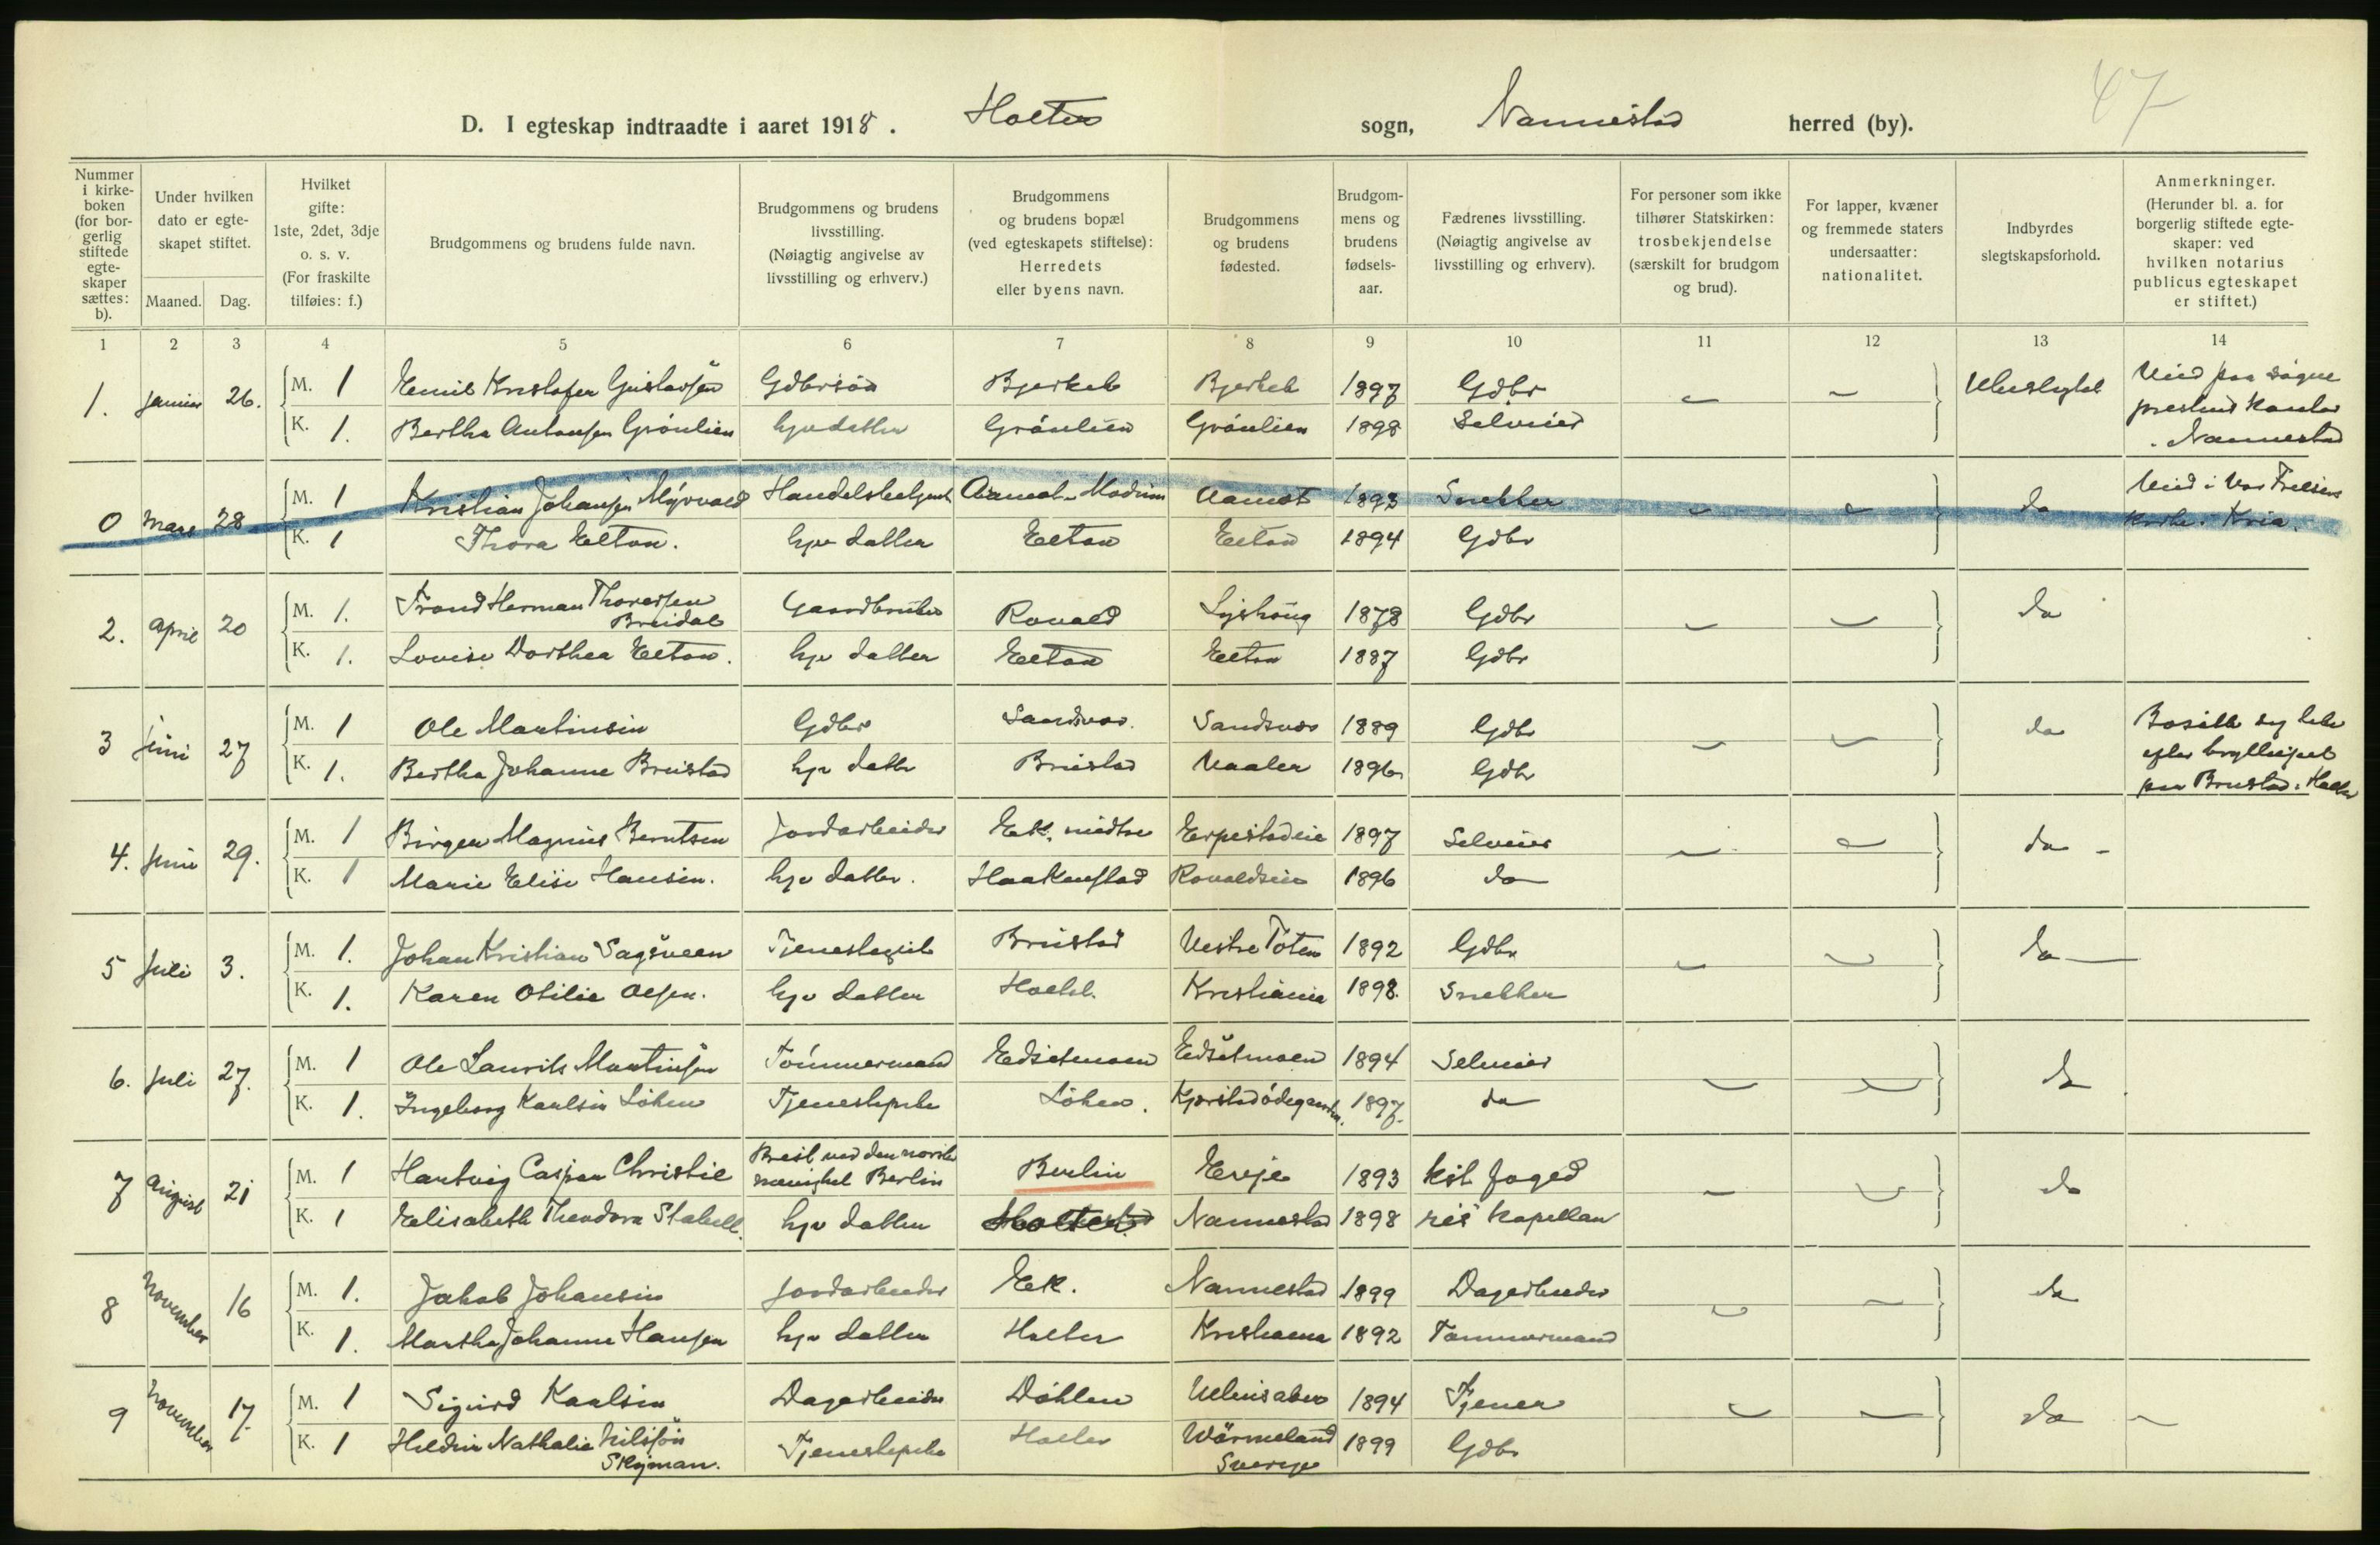 47
D. I egteskap indtraadte i aaret 1918. Holter sogn, Nannestad herred (by).
Nummer i kirkeboken (for borgerlig stiftede egteskaper sættes: b).
Under hvilken dato er egteskapet stiftet.
Maaned. Dag.
Hvilket gifte: 1ste, 2det, 3dje o. s. v. (For fraskilte tilføies: f.)
Brudgommens og brudens fulde navn.
Brudgommens og brudens livsstilling. (Nøiagtig angivelse av livsstilling og erhverv.)
Brudgommens og brudens bopæl (ved egteskapets stiftelse): Herredets eller byens navn.
Brudgommens og brudens fødested.
Brudgommens og brudens fødselsaar.
Fædrenes livsstilling. (Nøiagtig angivelse av livsstilling og erhverv).
For personer som ikke tilhører Statskirken: trosbekjendelse (særskilt for brudgom og brud).
For lapper, kvæner og fremmede staters undersaatter: nationalitet.
Indbyrdes slegtskapsforhold.
Anmerkninger. (Herunder bl. a. for borgerlig stiftede egteskaper: ved hvilken notarius publicus egteskapet er stiftet.)
1 2 3 4 5 6 7 8 9 10 11 12 13 14
1. Januar 26. M. 1 Emil Kristofer Gustavsen Gdbrsøn Bjerkeb Bjerkeb 1897 Gdbr
K. 1. Bertha Antonsen Grønlien hjv datter Grønlien Grønlien 1898 Selveier
Nannestad
0 Mars 28 M. 1 Kristian Johansen Myrvold Aamot Modum Aamot 1893 Snekker do Viet i Vor Frelsers
K. 1 Thora Elton. hjv datter Elton Elton 1894 Gdbr Kirke. Kria.
2. April 20 M. 1. Trond Herman Thoresen Breidal Gaardbruker Rovold 1878 Gdbr do
K. 1. Lovise Dorthea Elton. hjv datter Eltan Elton 1887 Gdbr
3 Juni 27 M. 1 Ole Martinsen Gdbr Sandsvær. Sandsvær 1889 Gdbr do Bosatte sig
K. 1. Bertha Johanne Brustad hjv datter Brustad Vaaler 1896 Gdbr efter bryllupet
paa Brustad i Holter
4. Juni 29. M. 1 Birger Magnus Berntsen Jordarbeider Ek. midtre Erpestadeie 1897 Selveier do -
K. 1 Marie Elise Hansen. hjv datter. Haakenstad Rovoldseie 1896 do
5 Juli 3. M. 1. Johan Kristian Sagsveen Brustad Vestre Toten 1892 Gdbr do
K. 1. Karen Otilie Olsen. hjv datter Kristiania 1898. Snekker
6. Juli 27. M. 1 Ole Laurits Martinsen Tømmermand Edsetmoen Edsetmoen 1894 Selveier do
K. 1. Ingeborg Karlsen Løken Tjenestepike Løken. 1897. do
7 August 21 M. 1 Hartvig Caspar Christie Prest ved den norske menighet Berlin Berlin Evje 1893 kst foged do
K. 1 Elisabeth Theodora Stabell. hjv datter Holter Nannestad 1898 res kapellan
8 November 16 M. 1. Jakob Johansen Jordarbeider Ek. Nannestad 1899 Dagarbeider do
K. 1. Martha Johanne Hansen hjv datter Holter Kristiania 1892 Tømmermand
9 November 17. M. 1 Sigurd Karlsen Dagarbeider Døhlen Ullensaker 1894 Tjener do
K. 1 Nathalie Nilsson Tjenestepike Holter Wärmeland 1899 Gdbr
Sverge